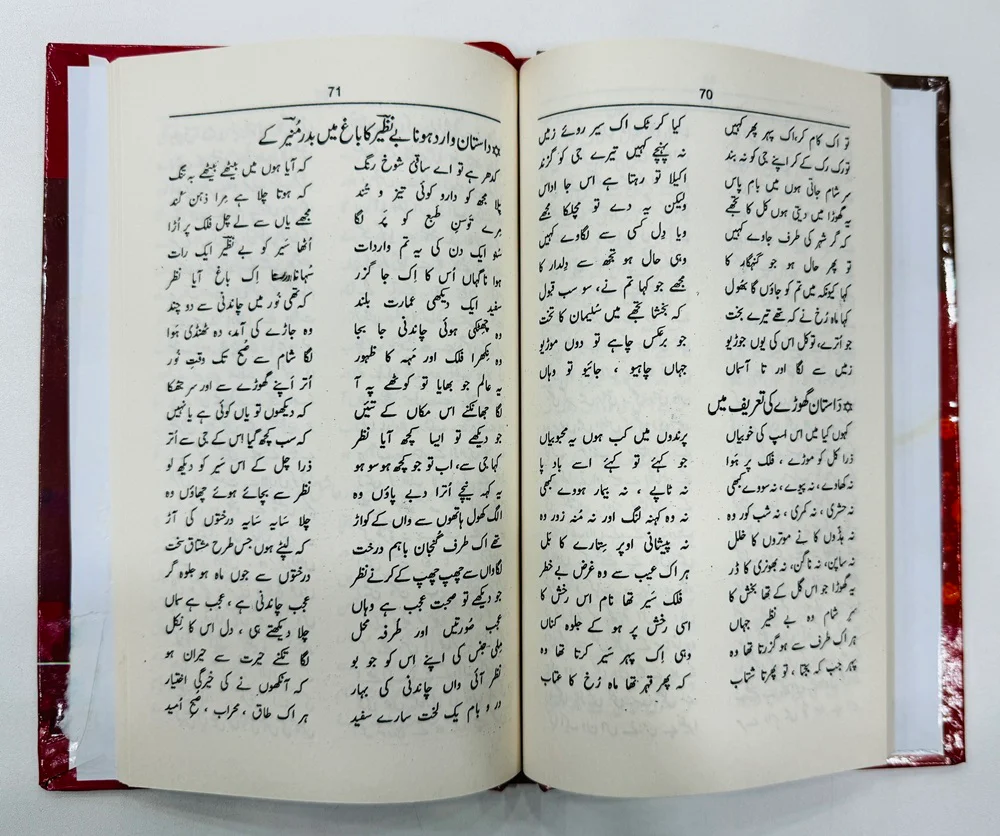 70
تو اک کام کر، اک پہر پھر کہیں کیا کر ٹک اک سیر روئے زمیں
تو رک رک کے کر اپنے جی کو نہ بند نہ پہنچے کہیں تیرے جی کو گزند
سرِ شام جاتی ہوں میں بام پاس اکیلا تو رہتا ہے اس جا اداس
یہ گھوڑا میں دیتی ہوں کل کا تجھے ولیکن یہ دے تو مچلکا مجھے
کہ گر شہر کی طرف جاوے کہیں ویا دل کسی سے لگاوے کہیں
تو پھر حال ہو جو گنہگار کا وہی حال ہو تجھ سے دلدار کا
کہا کیونکہ میں تم کو جاؤں گا بھول مجھے جو کہا تم نے، سو سب قبول
کہا ماہ رخ نے کہ تھے تیرے بخت کہ بخشا تجھے میں سلیمان کا تخت
جو اترے، تو کل اس کی یوں جوڑیو جو برعکس چاہے تو دوں موڑیو
زمیں سے لگا اور تا آسماں جہاں چاہیو ، جائیو تو وہاں
داستان گھوڑے کی تعریف میں
کہوں کیا میں اس اسپ کی خوبیاں پرندوں میں کب ہوں یہ محبوبیاں
ذرا کل کو موڑے ، فلک پر ہوا جو کہئے تو کہئے اسے باد پا
نہ کھاوے، نہ پیوے، نہ سووے کبھی نہ ٹاپے ، نہ بیمار ہووے کبھی
نہ حشری ، نہ کمری ، نہ شب کور وہ نہ وہ کہنہ لنگ اور نہ منہ زور وہ
نہ ہڈوں کا نے موتروں کا خلل نہ پیشانی اوپر ستارے کا بل
نہ ساپن، نہ ناگن، نہ بھونری کا ڈر ہر اک عیب سے وہ غرض بے خطر
یہ گھوڑا جو اس گل کے تھا بخش کا فلک سیر تھا نام اس رخش کا
سرِ شام وہ بے نظیر جہاں اسی رخش پر ہو کے جلوہ کناں
ہر اک طرف سے ہو گزرتا تھا وہ وہی اک پہر سیر کرتا تھا وہ
پہر جب کہ بجتا ، تو پھرتا شتاب کہ پھر قہر تھا ماہ رخ کا عتاب
71
داستان وارد ہونا بے نظیر کا باغ میں بدر منیر کے
کدھر ہے تو اے ساقی شوخ رنگ کہ آیا ہوں میں بیٹھے بیٹھے بہ تنگ
پلا مجھ کو دارو کوئی تیز و تند کہ ہوتا چلا ہے مرا ذہن کند
مرے توسنِ طبع کو پر لگا مجھے یاں سے لے چل فلک پر اڑا
سنو ایک دن کی یہ تم واردات اٹھا سیر کو بے نظیر ایک رات
ہوا ناگہاں اس کا اک جا گزر سہانا اک باغ آیا نظر
سفید ایک دیکھی عمارت بلند کہ تھی نور میں چاندنی سے دو چند
وہ چھٹکی ہوئی چاندنی جا بجا وہ جاڑے کی آمد، وہ ٹھنڈی ہوا
وہ نکھرا فلک اور مہ کا ظہور لگا شام سے صبح تک وقتِ نور
یہ عالم جو بھایا تو کوٹھے پہ آ اتر اپنے گھوڑے سے اور سر جھکا
لگا جھانکنے اس مکاں کے تئیں کہ دیکھوں تو یاں کوئی ہے یا نہیں
جو دیکھے تو ایسا کچھ آیا نظر کہ سب کچھ گیا اس کے جی سے اتر
کہا جی سے، اب تو جو کچھ ہو سو ہو ذرا چل کے اس سیر کو دیکھ لو
یہ کہہ نیچے اترا دبے پاؤں وہ نظر سے بچائے ہوئے چھاؤں وہ
الگ کھول ہاتھوں سے واں کے کواڑ چلا سایہ سایہ درختوں کی آڑ
تھے اک طرف گنجان باہم درخت کہ لپٹے ہوں جس طرح مشتاق سخت
لگا واں سے چھپ چھپ کے کرنے نظر درختوں سے جوں ماہ ہو جلوہ گر
جو دیکھے تو صحبت عجب ہے وہاں عجب چاندنی ہے ، عجب ہے سماں
عجب صورتیں اور طرفہ محل چلا دیکھتے ہی ، دل اس کا نکل
ملی جنس کی اپنے اس کو جو بو لگا تکنے حیرت سے حیران ہو
نظر آئی واں چاندنی کی بہار کہ آنکھوں نے کی خیرگی اختیار
در و بام یک لخت سارے سفید ہر اک طاق ، محراب ، صبحِ امید